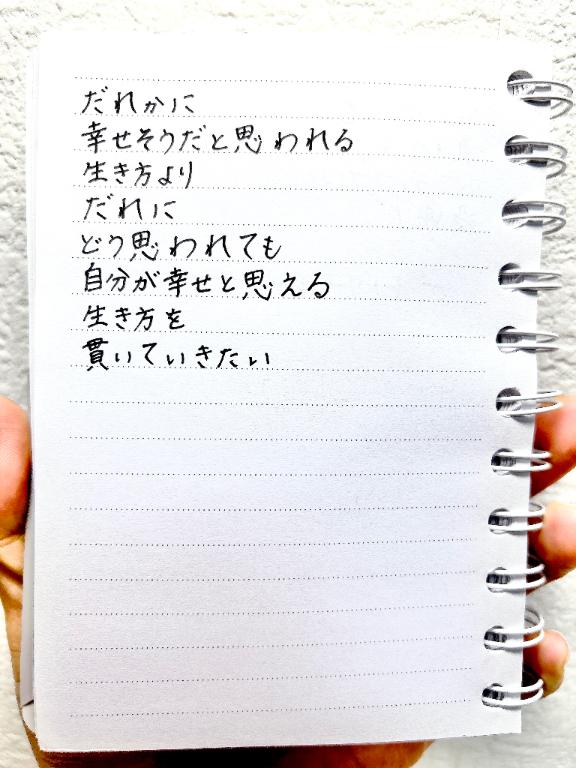 だれかに
幸せそうだと思われる
生き方より
だれに
どう思われても
自分が幸せと思える
生き方を
貫いていきたい